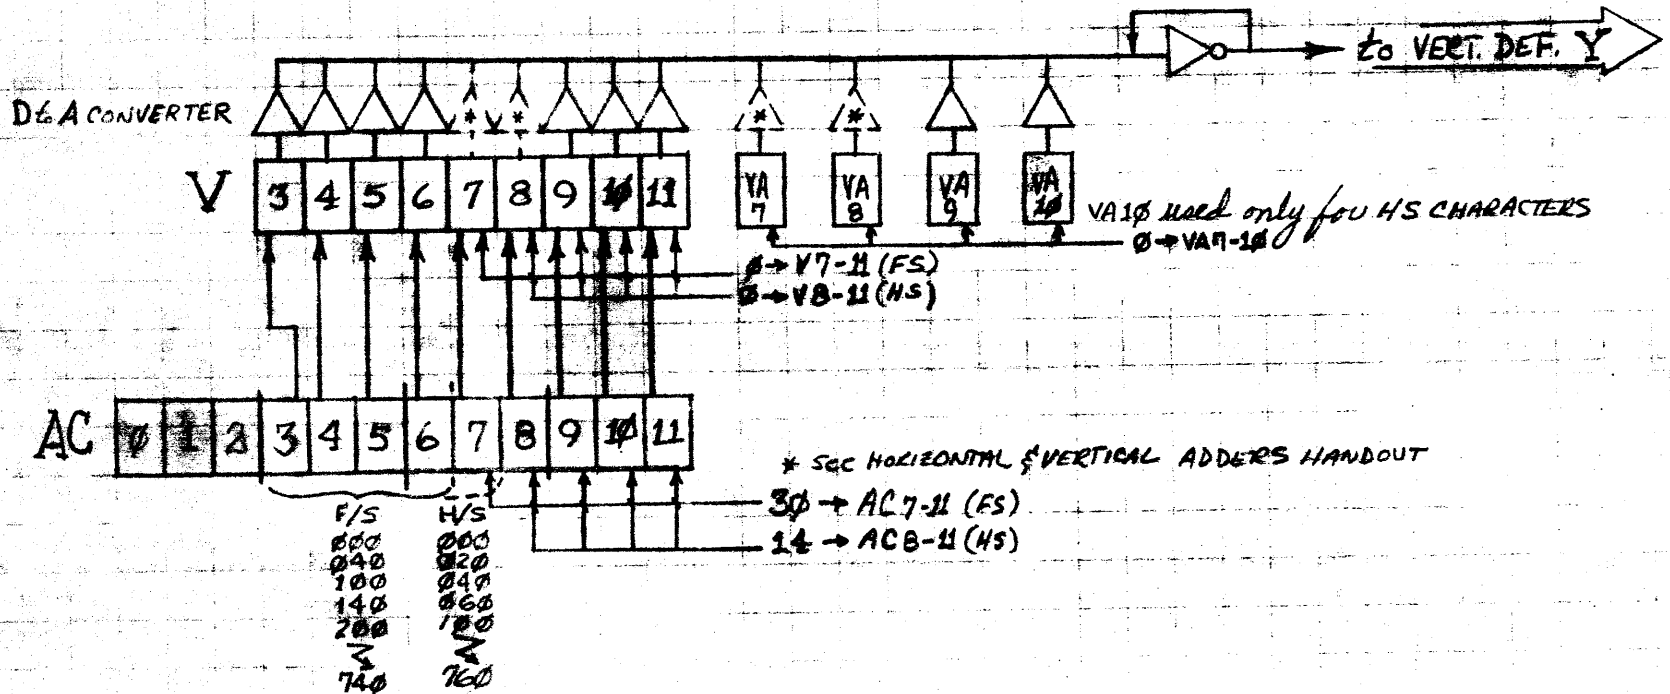 to VERT. DEF. Y
D to A CONVERTER
* *
* *
V 3 4 5 6 7 8 9 1Ø 11
VA 7
VA 8
VA 9
VA 1Ø
VA1Ø used only for HS CHARACTERS
Ø → VA7-1Ø
Ø → V7-11 (FS)
Ø → V8-11 (HS)
AC Ø 1 2 3 4 5 6 7 8 9 1Ø 11
* SEE HORIZONTAL & VERTICAL ADDERS HANDOUT
3Ø → AC7-11 (FS)
14 → AC8-11 (HS)
F/S H/S
ØØØ ØØØ
Ø4Ø Ø2Ø
1ØØ Ø4Ø
14Ø Ø6Ø
2ØØ 1ØØ
74Ø 76Ø